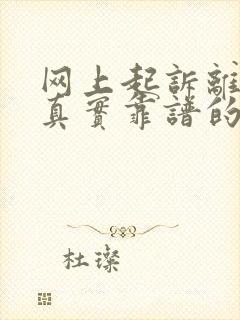 网上起訴離
真實靠譜的
杜璨